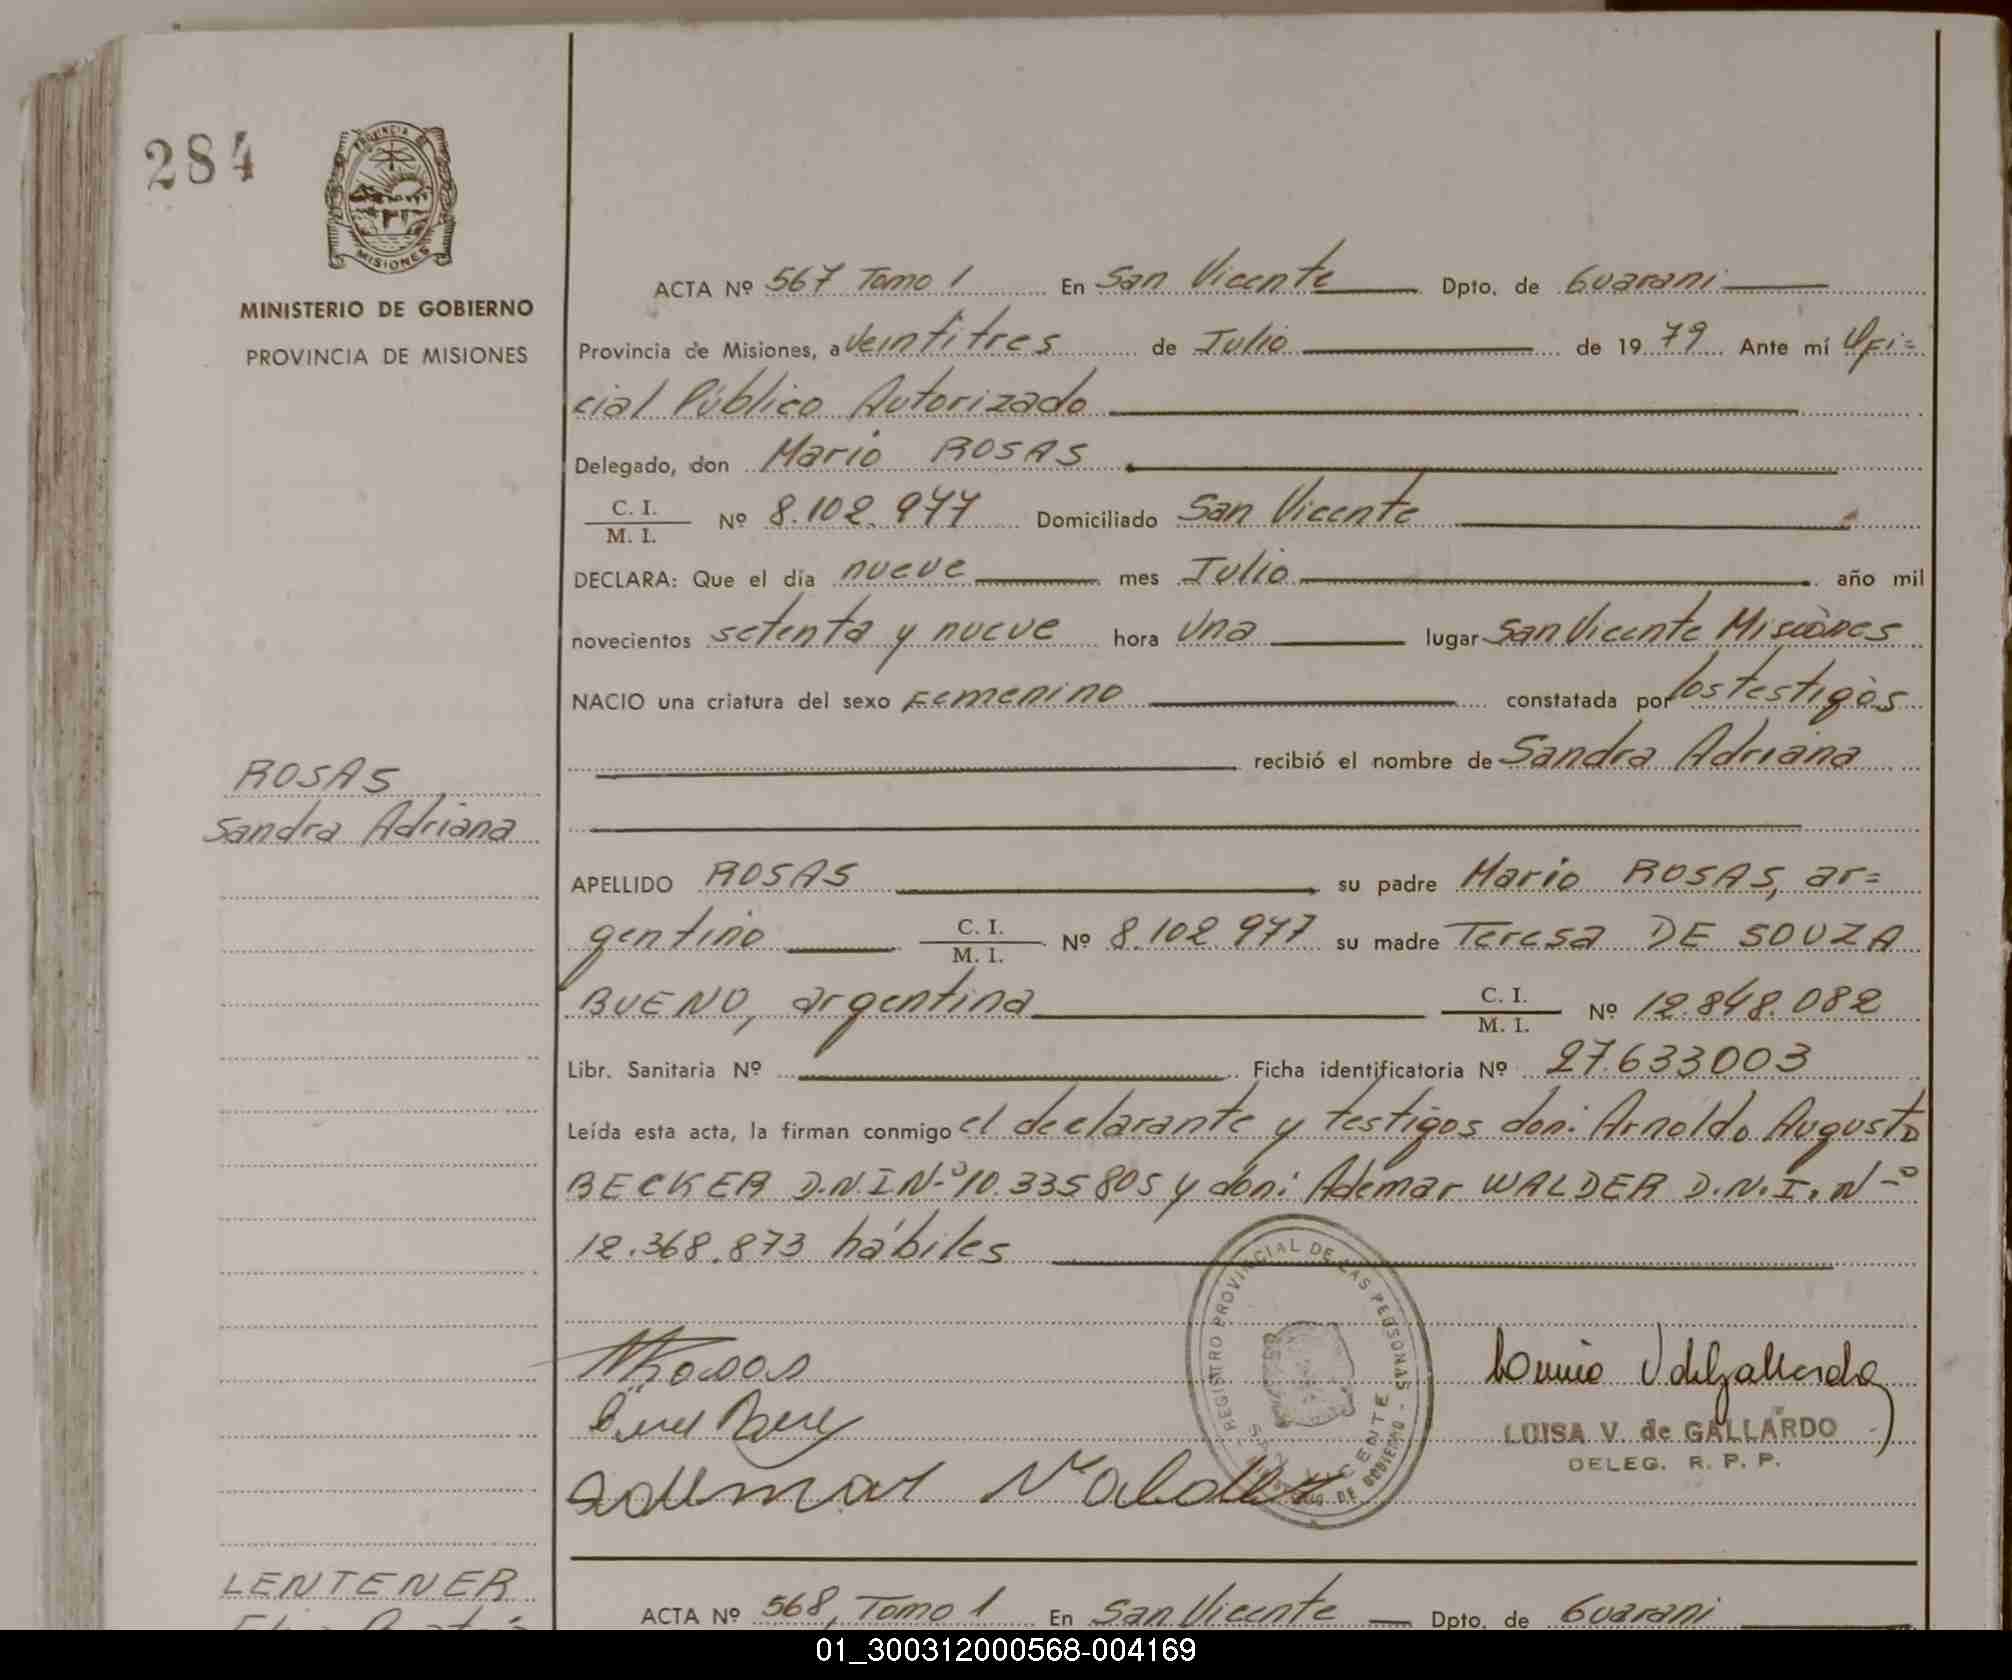 284
PROVINCIA DE
MISIONES
MINISTERIO DE GOBIERNO
PROVINCIA DE MISIONES
ROSAS
Sandra Adriana
ACTA Nº 567 Tomo 1 En San Vicente Dpto. de Guarani
Provincia de Misiones, a veintitres de Julio de 1979 Ante mí Ofi=
cial Público Autorizado
Delegado, don Mario ROSAS
C. I.
M. I. Nº 8.102.977 Domiciliado San Vicente
DECLARA: Que el día nueve mes Julio año mil
novecientos setenta y nueve hora una lugar San Vicente Misiones
NACIO una criatura del sexo Femenino constatada por los testigos
recibió el nombre de Sandra Adriana
APELLIDO ROSAS su padre Mario ROSAS, ar=
gentino C. I. M. I. Nº 8.102.977 su madre Teresa DE SOUZA
BUENO, argentina C. I. M. I. Nº 12.848.082
Libr. Sanitaria Nº Ficha identificatoria Nº 27.633003
Leída esta acta, la firman conmigo el declarante y testigos don: Arnoldo Augusto
BECKER D.N.I Nº 10.335805 y don: Ademar WALDER D.N.I. Nº
12.368.873 hábiles
REGISTRO PROVINCIAL DE LAS PERSONAS
LUISA V. de GALLARDO
DELEG. R. P. P.
LENTENER
ACTA Nº 568, Tomo 1 En San Vicente Dpto. de Guarani
01_300312000568-004169